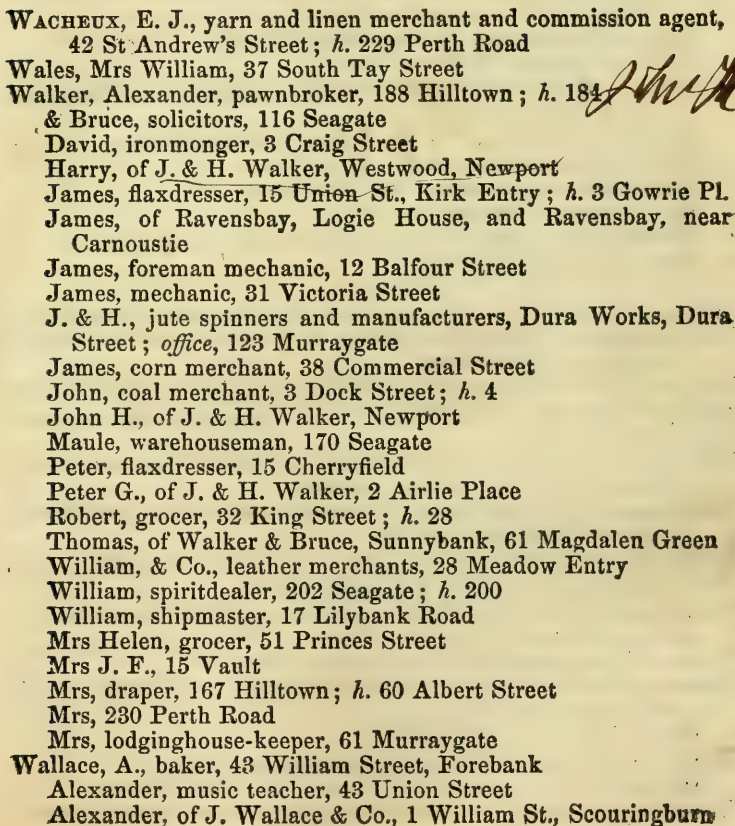 WACHEUX, E. J., yarn and linen merchant and commission agent,
42 St Andrew's Street; h. 229 Perth Road
Wales, Mrs William, 37 South Tay Street
Walker, Alexander, pawnbroker, 188 Hilltown; h. 184
& Bruce, solicitors, 116 Seagate
David, ironmonger, 3 Craig Street
Harry, of J. & H. Walker, Westwood, Newport
James, flaxdresser, 15 Union St., Kirk Entry; h. 3 Gowrie Pl.
James, of Ravensbay, Logie House, and Ravensbay, near
Carnoustie
James, foreman mechanic, 12 Balfour Street
James, mechanic, 31 Victoria Street
J. & H., jute spinners and manufacturers, Dura Works, Dura
Street; office, 123 Murraygate
James, corn merchant, 38 Commercial Street
John, coal merchant, 3 Dock Street; h. 4
John H., of J. & H. Walker, Newport
Maule, warehouseman, 170 Seagate
Peter, flaxdresser, 15 Cherryfield
Peter G., of J. & H. Walker, 2 Airlie Place
Robert, grocer, 32 King Street; h. 28
Thomas, of Walker & Bruce, Sunnybank, 61 Magdalen Green
William, & Co., leather merchants, 28 Meadow Entry
William, spiritdealer, 202 Seagate; h. 200
William, shipmaster, 17 Lilybank Road
Mrs Helen, grocer, 51 Princes Street
Mrs J. F., 15 Vault
Mrs, draper, 167 Hilltown; h. 60 Albert Street
Mrs, 230 Perth Road
Mrs, lodginghouse-keeper, 61 Murraygate
Wallace, A., baker, 43 William Street, Forebank
Alexander, music teacher, 43 Union Street
Alexander, of J. Wallace & Co., 1 William St., Scouringburn